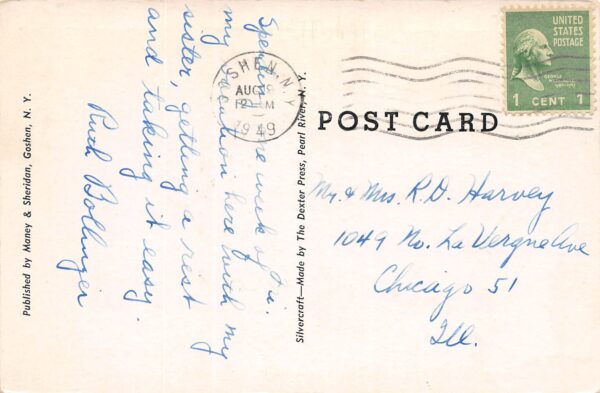 Spending one week of
my vacation here with my
sister, getting a rest
and taking it easy.
Ruth Bollinger
Published by Maney & Sheridan, Goshen, N. Y.
Silvercraft—Made by The Dexter Press, Pearl River, N. Y.
GOSHEN, N.Y.
AUG
12 M
1949
POST CARD
UNITED
STATES
POSTAGE
GEORGE
WASHINGTON
1 CENT 1
Mr. & Mrs. R. D. Harvey
1049 No. La Vergne Ave
Chicago 51
Ill.